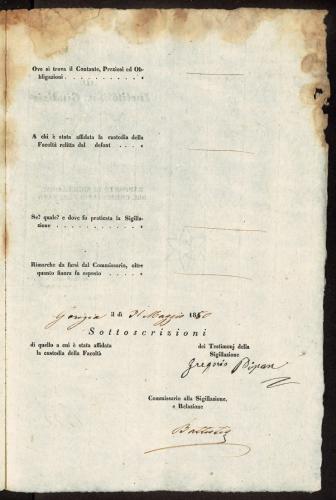 Ove si trova il Contante, Preziosi ed Ob-
bligazioni . . . . . . . . . . .
A chi è stata affidata la custodia della
Facoltà relitta dal defont . . . .
Se? quale? e dove fu praticata la Sigilla-
zione . . . . . . . . . . . . .
Rimarche da farsi dal Commissario, oltre
quanto finora fu esposto . . . . .
Gorizia il dì 31 Maggio 1850
Sottoscrizioni
di quello a cui è stata affidata
la custodia della Facoltà
dei Testimonj della
Sigillazione
Gregorio
Commissario alla Sigillazione,
e Relazione